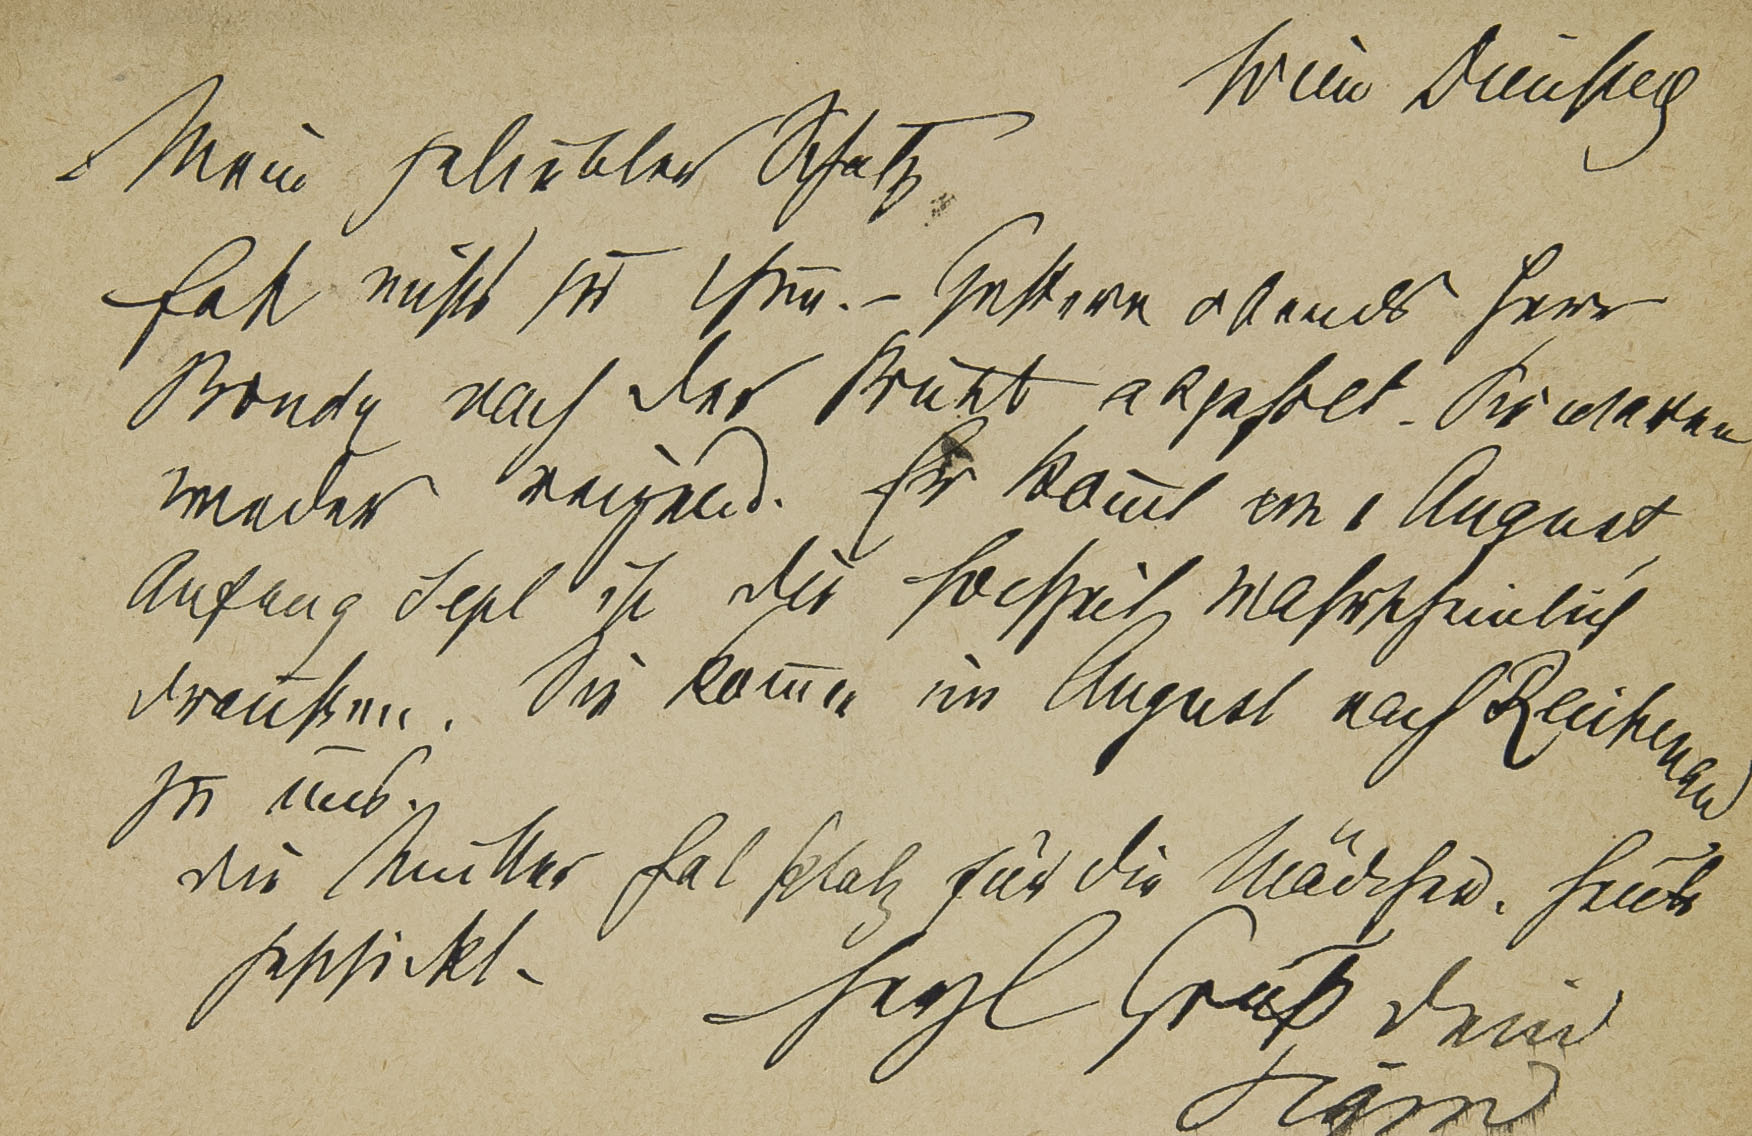 Wien Dienstag
Mein geliebter Schatz
Fast nichts zu thun. – Gestern abends Herr
Bondy nach der Brühl abgeholt. Sie waren
wieder reizend. Er kom̄t am 1 August,
Anfang Sept ist die Hochzeit wahrscheinlich
draußen. Sie kom̄en im August nach Reichenau
zu uns.
Die Mutter hat Platz für die Mädchen. Heute
geschickt.
Herzl Gruß Dein
Sigm